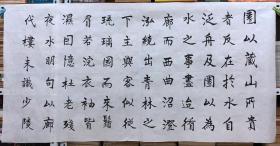 園以藏山所貴
者反在於水自
泛舟及園以為
水之事盡迨循
廊而西曲沼澄
泓繞出青林之
下主與客似從
琉璃國而來鬚
眉若浣衣袖皆
濕因憶杜老殘
夜水明句以廊
代樓未識少陵